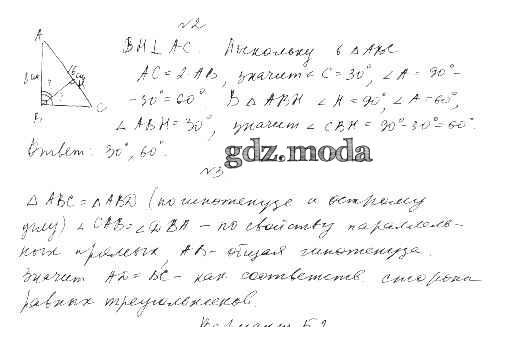 №2
A
BH ⊥ AC. Поскольку в △ABC
8 см
16 см
AC = 2 AB, значит ∠C = 30°, ∠A = 90° -
- 30° = 60°. В △ABH ∠H = 90°, ∠A = 60°,
B
C
∠ABH = 30°, значит ∠CBH = 90° - 30° = 60°.
Ответ: 30°, 60°.
gdz.moda
№3
△ABC = △ABD (по гипотенузе и острому
углу) ∠CAB = ∠DBA - по свойству параллель-
ных прямых, AB - общая гипотенуза.
Значит AD = BC - как соответств. стороны
равных треугольников.